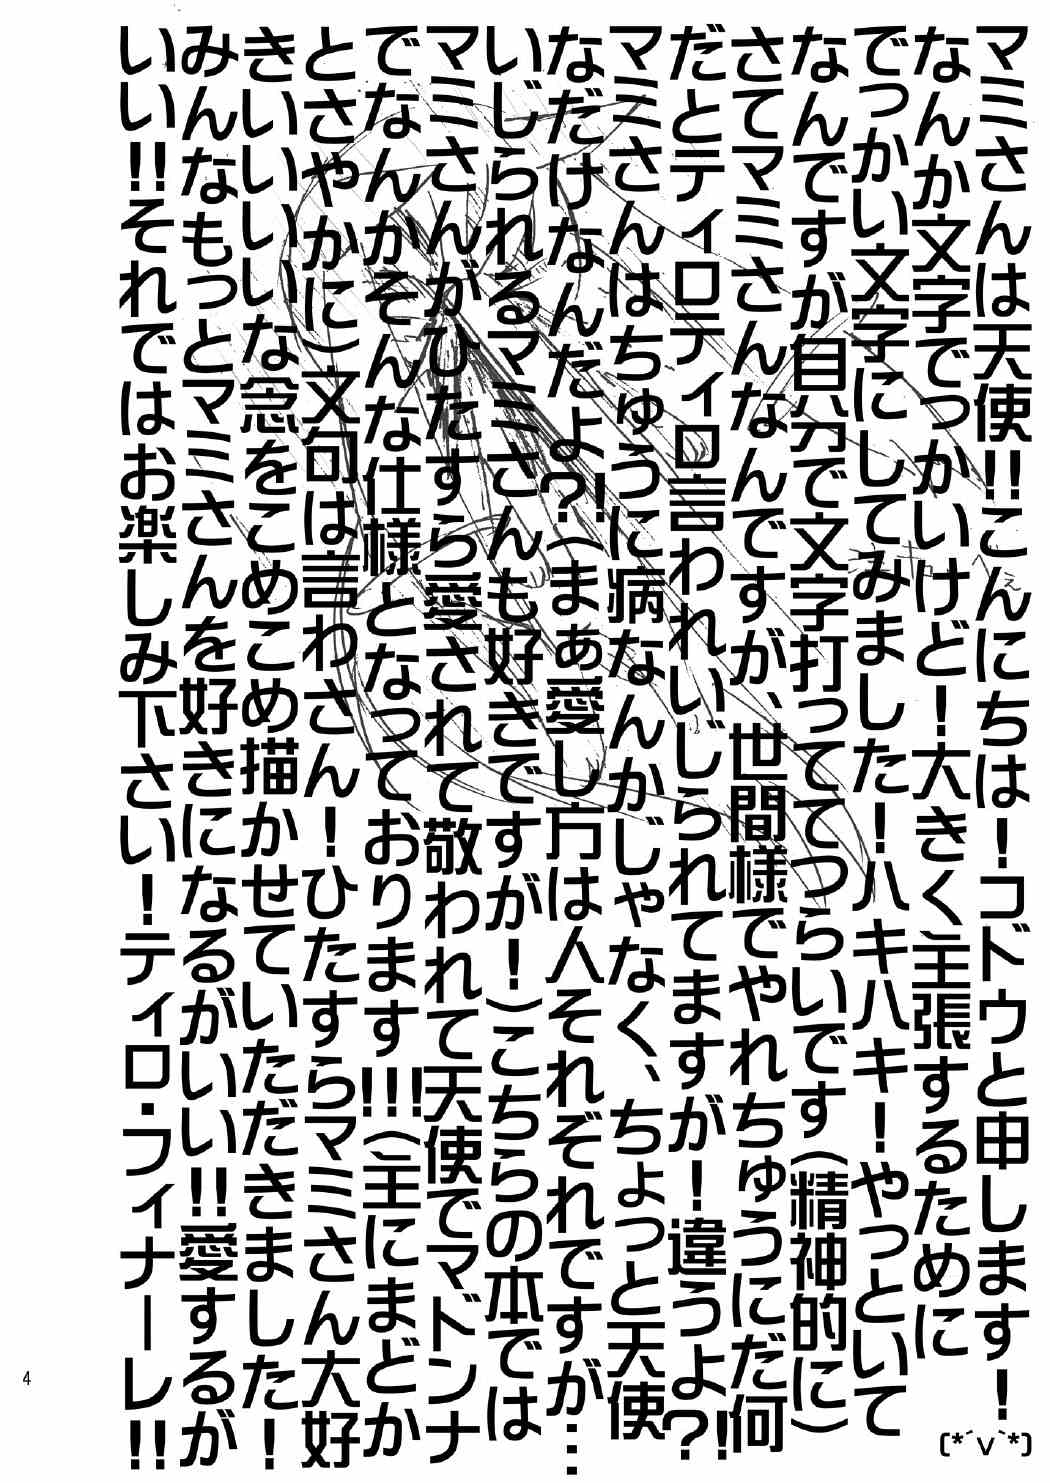 マミさんは天使!!こんにちは!コドウと申します!(*´∨`*)
なんか文字でっかいけど!大きく主張するために
でっかい文字にしてみました!ハキハキ!やっといて
なんですが自分で文字打っててつらいです(精神的に)
さてマミさんなんですが、世間様でやれちゅうにだ何
だとティロティロ言われいじられてますが!違うよ?!
マミさんはちゅうに病なんかじゃなく、ちょっと天使
なだけなんだよ?!(まぁ愛し方は人それぞれですが…
いじられるマミさんも好きですが!)こちらの本では
マミさんがひたすら愛されて敬われて天使でマドンナ
でなんかそんな仕様となっております!!!(主にまどか
とさやかに)文句は言わさん!ひたすらマミさん大好
きいいいいいな念をこめこめ描かせていただきました!
みんなもっとマミさんを好きになるがいい!!愛するが
いい!!それではお楽しみ下さい!ティロ・フィナーレ!!
4